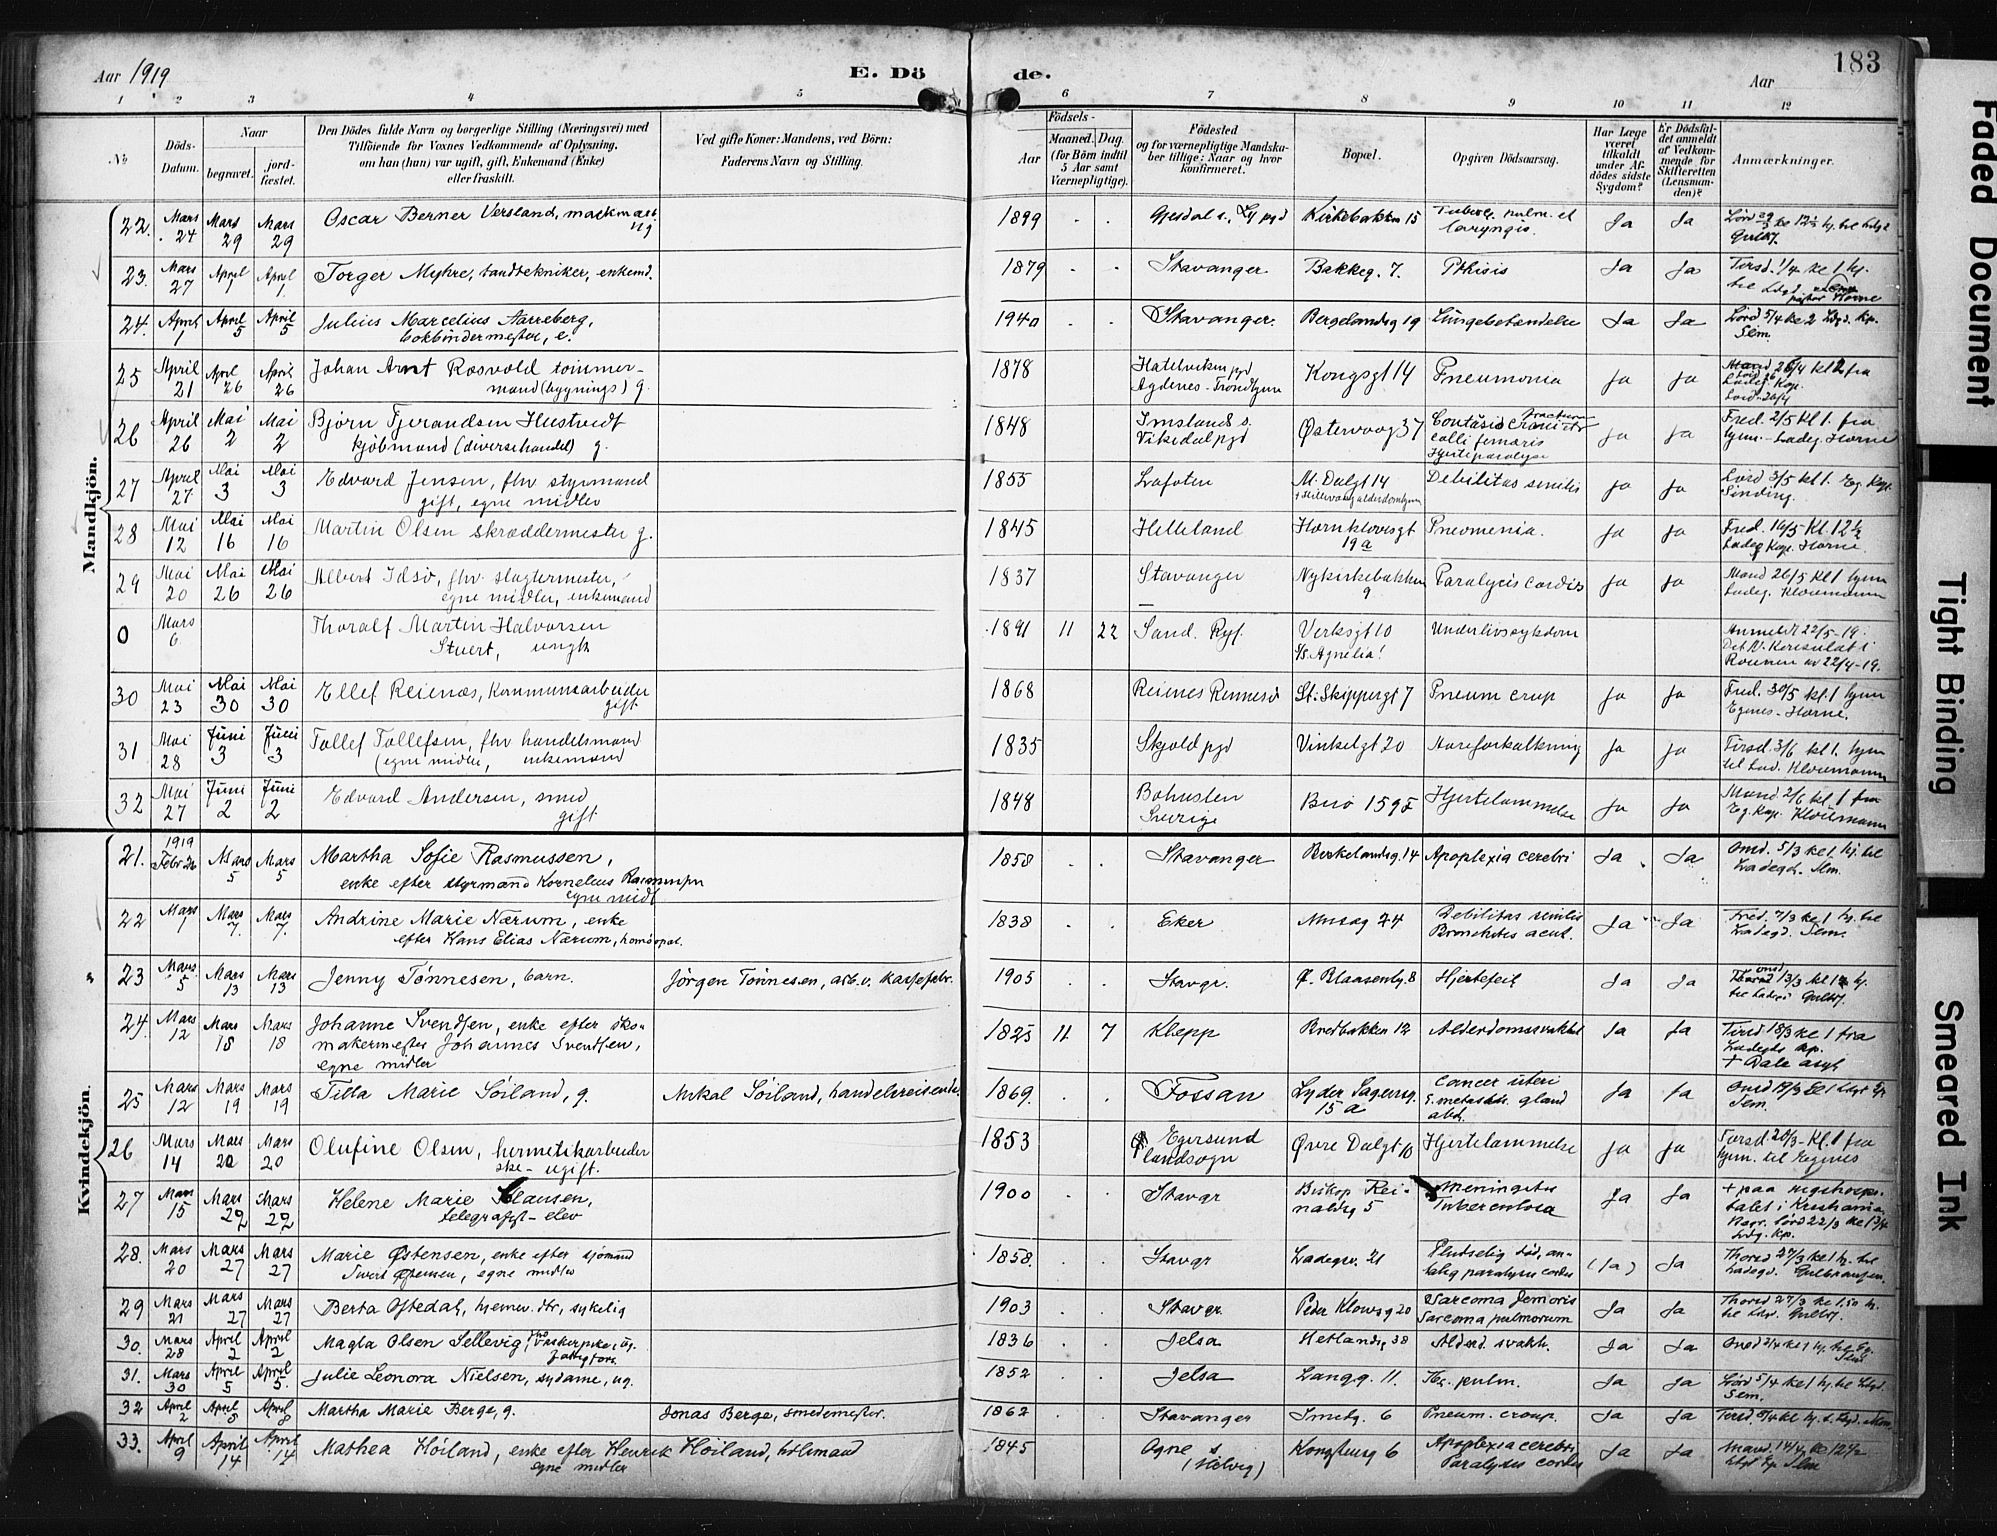 Aar 1919
E. Dö
de.
Aar
183
1 2 3 4 5 6 7 8 9 10 11 12
No
Döds-
Datum.
Naar
begravet.
jord-
fæstet.
Den Dödes fulde Navn og borgerlige Stilling (Næringsvei) med
Tilföiende for Voxnes Vedkommende af Oplysning,
om han (hun) var ugift, gift, Enkemand (Enke)
eller fraskilt.
Ved gifte Koner: Mandens, ved Börn:
Faderens Navn og Stilling.
Födsels-
Aar
Maaned. Dag.
(for Börn indtil
5 Aar samt
Værnepligtige).
Födested
og for værnepligtige Mandska-
ber tillige: Naar og hvor
konfirmeret.
Bopæl.
Opgiven Dödsaarsag.
Har Læge
været
tilkaldt
under Af-
dödes sidste
Sygdom?
Er Dödsfal-
det anmeldt
af Vedkom-
mende for
Skifteretten
(Lensman-
den)?
Anmærkninger.
Mandkjön.
22. Mars 24 Mars 29 Mars 29 Oscar Berner Versland, 1899 . . Gjesdal s. Ly pgd Kirkebakken 15 Tuberc. pulm. et laryngis. Ja Ja
23. Mars 27 April 1 April 1 Torger Myhre, tandtekniker, enkemd. 1879 . . Stavanger Bakkeg. 7. Pthisis Ja Ja Tirsd. 1/4 kl 1 hj.
24. April 1 April 5 April 5 Julius Marcelius Aarreberg, bokbindermester, e. 1940 . . Stavanger. Bergelandsg 19 Lungebetændelse Ja Ja Lörd 5/4 kl 2 Ldgd. Kp. Sem.
25 April 21 April 26 April 26 Johan Arnt Rosvold tömmer-
mand (bygnings) g. 1878 Hatelviken pgd Agdenes - Trondhjem Kongsgt 14 Pneumonia Ja Ja
26 April 26 Mai 2 Mai 2 Björn Tjerandsen Hustvedt
kjöbmand (diversehandel) g. 1848 Imslands s. Vikedal pgd Østervaag 37 Contusio cranii fractura colli femoris Hjerteparalyse Ja Ja Fred. 2/5 kl 1. fra hjem. - Ladeg. Horne
27 April 27 Mai 3 Mai 3 Edvard Jensen, fhv styrmand
gift, egne midler 1855 Lofoten N. Dalgt 14 Debilitas senilis Ja Ja Lörd 3/5 kl 1. Eg. Kap. Sinding.
28 Mai 12 Mai 16 Mai 16 Martin Olsen skræddermester g. 1845 Helleland Hornklovesgt 19a Pneomenia. Ja Ja Fred. 16/5 Kl. 12 1/2 Ladeg Kap. Horne
29 Mai 20 Mai 26 Mai 26 Albert Idsö, fhv. slagtermester,
egne midler, enkemand 1837 Stavanger Nykirkebakken 9 Paralycis cordis Ja Ja Mand 26/5 Kl 1 hjem Ladeg. Kloumann
0 Mars 6 Thoralf Martin Halvorsen
Stuert, ungk 1891 11 22 Sand. Ryf. Verksgt 10 S/S Agnelia! Underlivssykdom Anmeldt 22/5-19. Det N. Konsulat i Rouen av 22/4-19.
30 Mai 23 Mai 30 Mai 30 Ellef Reienæs, Kommunearbeider
gift 1868 Reienes Rennesö St: Skippergt 7 Pneum crup Ja Ja Fred. 30/5 kl. 1 hjem Egenes - Horne.
31 Mai 28 Juni 3 Juni 3 Tollef Tollefsen, fhv handelsmand
(egne midler, enkemand 1835 Skjold pgd Vinkelgt 20 Aareforkalkning Ja Ja Tirsd. 3/6 kl 1. hjem til Lad. Kloumann
32 Mai 27 Juni 2 Juni 2 Edvard Andersen, smed
gift 1848 Bohuslen Sverige Buö 159 Hjertelammelse Ja Ja Mand 2/6 kl. 1 fra Eg. Kap. Kloumann
Kvindekjön
21. 1919 Febr 26 Mars 5 Mars 5 Martha Sofie Rasmussen,
enke efter styrmand Kornelius Rasmussen
egne midl 1858 . . Stavanger Birkelandsg. 14 Apoplexia cerebri Ja . Ja Onsd. 5/3 kl 1. hj. til Ladegd. Sem.
22 Mars 1 Mars 7. Mars 7. Andrine Marie Nærum, enke
efter Hans Elias Nærum, homöopat. 1838 . . Eker Musæg 24 Debilitas senilis Bronchites acut. Ja Ja Fred. 7/3 kl 1 hj. til Ladegd. Sem.
23 Mars 5 Mars 13 Mars 13 Jenny Tönnesen, barn. Jörgen Tönnesen, arb. v. kassefabr. 1905 . . Stavgr. Ø. Blaasenbg. 8 Hjertefeil Ja Ja
24. Mars 12 Mars 18 Mars 18 Johanne Svendsen, enke efter sko-
makermester Johannes Svendsen,
egne midler 1825 11 7 Klepp Bredbakken 12 Alderdomssvakhet Ja Ja Tirsd 18/3 kl 1 fra Ladegds kp.
25 Mars 12 Mars 19 Mars 19 Tilla Marie Söiland, g. Mikal Söiland, handelsreisende. 1869. . . Fossan Lyder Sagensg. 15 a Cancer uteri Ja Ja
26 Mars 14 Mars 20 Mars 20 Olufine Olsen, hermetikarbeider
ske - ugift. 1853 Egersund landsogn Øvre Dalgt 10 Hjertelammelse Ja Ja Torsd 20/3 - Kl. 1 fra hjem. til Egenes
27 Mars 15 Mars 22 Mars 22 Helene Marie Clausen,
telegrafist - elev 1900 . . Stavgr Biskop Rei-
naldsg 5 Meningitis Tuberculosa Ja Ja + paa rigshospi-
talet i Kristiania,
28. Mars 20 Mars 27 Mars 27 Marie Østensen, enke efter sjömand
Sivert Østensen, egne midler 1858. . . Stavgr Ladegv. 21 Plutselig död, an-
talig paralysis cordis (Ja) Ja Thorsd 27/3 kl 1 hj. til Ladegd. Gulbransen.
29 Mars 21 Mars 27 Mars 27 Berta Oftedal, hjemmev. dtr, sykelig 1903 . . Stavgr Peder Klowsg 20 Sarcoma femoris Sarcoma pulmorum Ja Ja
30. Mars 28 April 2 April 2 Magla Olsen Sellevig, 1836 . . Jelsa Hetlandsg 38 Alderd. svakh. Ja Ja
31. Mars 30 April 5 April 5. Julie Leonora Nielsen, sydame, ug. 1852 . . Jelsa Langg. 11. Tbc. pulm. Ja Ja Lörd 5/4 kl 1 hj. til Ldgd. Sem.
32 April 2 April 8 April 8 Martha Marie Berge, g. Jonas Berge, smedemester. 1862 . . Stavanger Smedg. 6 Pneum. croup. Ja Ja
33. April 9 April 14 April 14 Mathea Höiland, enke efter Henrik Höiland,
egne midler 1845 . . Ogne s Kongsburg 6 Apoplexia cerebri, Paralysis cordis Ja Ja
Faded Document
Tight Binding
Smeared Ink